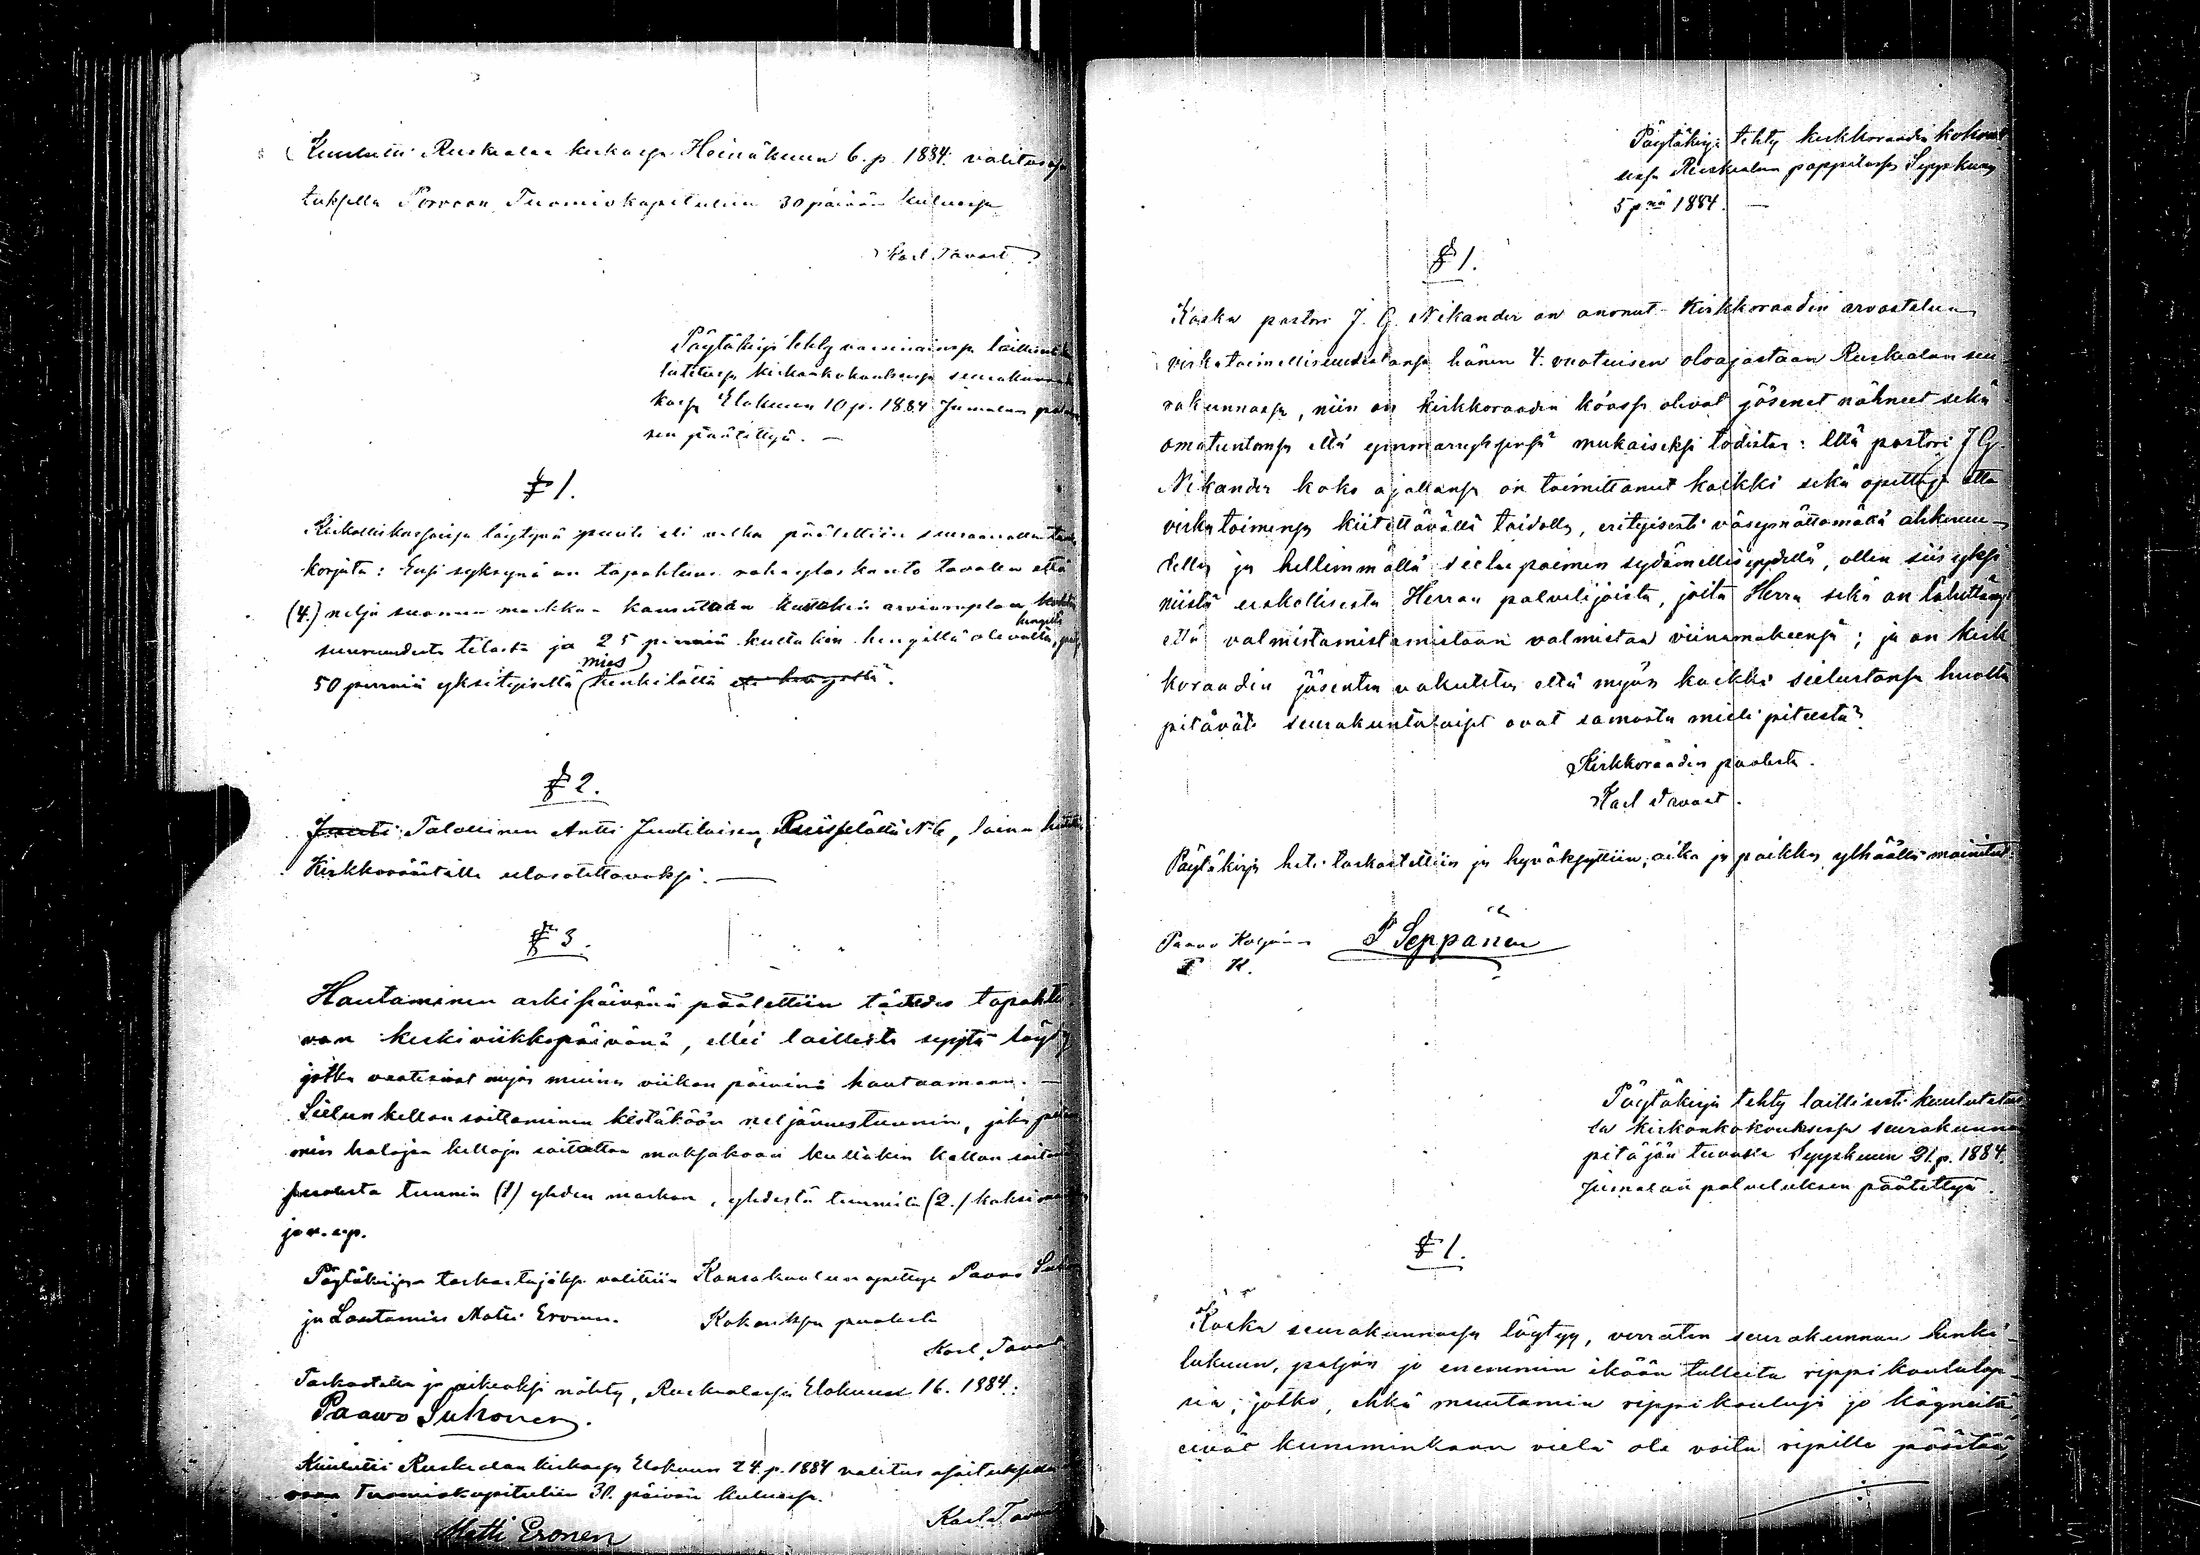 Kuulutti Ruskealan kirkossa Heinäkuun 6. p. 1884. valitusoso-
tuksella Porvoon Tuomiokapituliin 30 päivän kuluessa
Karl Tavast
Pöytäkirja tehty varsinaisessa laillisesti
kirkonkokouksessa
Elokuun 10 p. 1884 Jumalan
sen päätettyä. —
§ 1.
Kirkolliskassassa löytyvä puute eli velka päätettiin seuraavalla
korjata: Ensi syksynä on tapahtuva rahaylöskanto tavalla että
(4.) neljä suomen markkaa kannetaan kustakin arvioruplan
hengeltä
suuruudesta tilasta ja 25 penniä kultakin hengillä olevalta,
mies
50 penniä yksityiseltä henkilöltä eli hengestä.
§ 2.
Juuti Talollinen Antti Juutilaisen, Ruisselältä N:6, laina
Kirkkoväärtille ulosotettavaksi. —
§ 3.
Hautaminen arkipäivänä päätettiin tästedes tapahtu-
van keskiviikkopäivänä, ellei laillista syytä löydy
jotka vaatisivat myös muina viikon päivinä hautaamaan. —
Sielunkellon soittaminen kestäköön neljännestunnin, joka
min halajaa kelloja soitattaa maksakoon kullakin kellon
puolesta tunnin (1) yhden markan, yhdestä tunnista (2.) kaksi
ja n. e. p.
Pöytäkirjan tarkastajaksi valittiin Kansakoulun opettaja Paavo
ja Lautamies Matti Eronen. Kokouksen puolesta
Karl Tavast
Tarkastettu ja oikeaksi nähty, Ruskealassa Elokuun 16. 1884:
Paawo Suhonen.
Kuulutti Ruskealan kirkossa Elokuun 24. p. 1884 valitus osoituksella
Tuomiokapituliin 30. päivän kuluessa.
Karl Tavast
Matti Eronen
Pöytäkirja tehty kirkkoraadin kokouk-
sessa Ruskealan pappilassa Syyskuun
5 p:nä 1884. —
§ 1.
Koska pastori J. G. Nikander on anonut Kirkkoraadin arvostelun
virkatoimellisuudestansa hänen 4. vuotuisen oloajastaan Ruskealan seu-
rakunnassa, niin on Kirkkoraadin koossa olevat jäsenet nähneet sekä
omatuntonsa että ymmärryksensä mukaiseksi todistaa: että pastori J G.
Nikander koko ajallansa on toimittanut kaikki sekä opettaja että
virkatoimensa kiitettävällä taidolla, erityisesti väsymättömällä ahkeruu-
della ja hellimmällä sielupaimen sydämellisyydellä, ollen siis yksi
niistä uskollisista Herran palvelijoista, joita Herra sekä on lähettänyt
että valmistamistamistaan valmistaa viinimäkeensä; ja on kirk
koraadin jäsenten vakuutus että myös kaikki sielustansa huolta
pitävät seurakuntalaiset ovat samasta mieli piteestä.
Kirkkoraadin puolesta.
Karl Tavast.
Pöytäkirja heti tarkastettiin ja hyväksyttiin, aika ja paikka ylhäällä mainitut.
Paavo
P K.
P Seppänen
Pöytäkirja tehty laillisesti kuulutetus-
sa kirkonkokouksessa seurakunnan
pitäjän tuvassa Syyskuun 21. p. 1884.
Jumalan palveluksen päätettyä.
§ 1.
Koska seurakunnassa löytyy, verraten seurakunnan henki-
lukuun, paljon jo enemmin ikään tulleita rippikoululap-
sia, jotka, ehkä muutamia rippikouluja jo käyneitä,
eivät kumminkaan vielä ole voitu ripille päästää,